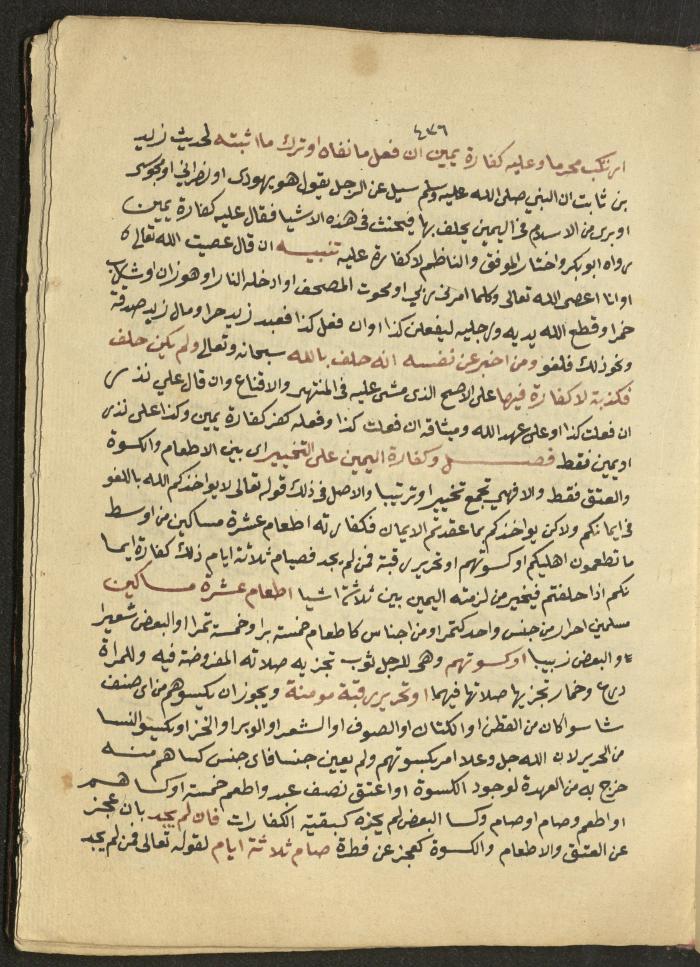 ٤٣٦
ارتكب محرما وعليه كفارة يمين ان فعل ما نفاه او ترك ما اثبته لحديث زيد
بن ثابت ان النبي صلى الله عليه وسلم سيل عن الرجل يقول هو يهودي او نصراني او مجوسي
او بري من الاسلام في اليمين يحلف بها فيحنث في هذه الاشيا فقال عليه كفارة يمين
رواه ابو بكر واختار الموفق والناظم لا كفارة عليه تنبيه ان قال عصيت الله تعالى
او انا اعصي الله تعالى وكلما امرني ربي او محوت المصحف او ادخله النار او هو زان او شارب
خمر او قطع الله يديه ورجليه ليفعلن كذا او ان فعل كذا فعبد زيد حر او مال زيد صدقة
ونحو ذلك فلغو ومن اخبر عن نفسه انه حلف بالله سبحانه وتعالى ولم يكن حلف
فكذبة لا كفارة فيها على الاصح الذي مشى عليه في المنتهى والاقناع وان قال علي نذر
ان فعلت كذا او علي عهد الله وميثاقه ان فعلت كذا وفعله كفر كفارة يمين وكذا علي نذر
او يمين فقط فصل وكفارة اليمين على التخيير اي بين الاطعام والكسوة
والعتق فقط والا فهي تجمع تخييرا وترتيبا والاصل في ذلك قوله تعالى لا يواخذكم الله باللغو
في ايمانكم ولاكن يواخذكم بما عقدتم الايمان فكفارته اطعام عشرة مساكين من اوسط
ما تطعمون اهليكم او كسوتهم او تحرير رقبة فمن لم يجد فصيام ثلاثة ايام ذلك كفارة ايما
نكم اذا حلفتم فيخير من لزمته اليمين بين ثلاثة اشيا اطعام عشرة مساكين
مسلمين احرار من جنس واحد كتمر او من اجناس كاطعام خمسة برا وخمسة تمرا او البعض شعيرا
والبعض زبيبا او كسوتهم وهي للرجل ثوب تجزيه صلاته المفروضة فيه وللمراة
درع وخمار تجزيها صلاتها فيهما او تحرير رقبة مومنة ويجوز ان يكسوهم من اي صنف
شا سوا كان من القطن او الكتان او الصوف او الشعر او الوبر او الخز او يكسو النسا
من الحرير لان الله جل وعلا امر بكسوتهم ولم يعين جنسا فاي جنس كساهم منه
خرج به من العهدة لوجود الكسوة او اعتق نصف عبد واطعم خمسة او كساهم
او اطعم وصام او صام وكسا البعض لم يجزه كبقية الكفارات فان لم يجد بان عجز
عن العتق والاطعام والكسوة كعجز عن فطرة صام ثلاثة ايام لقوله تعالى فمن لم يجد